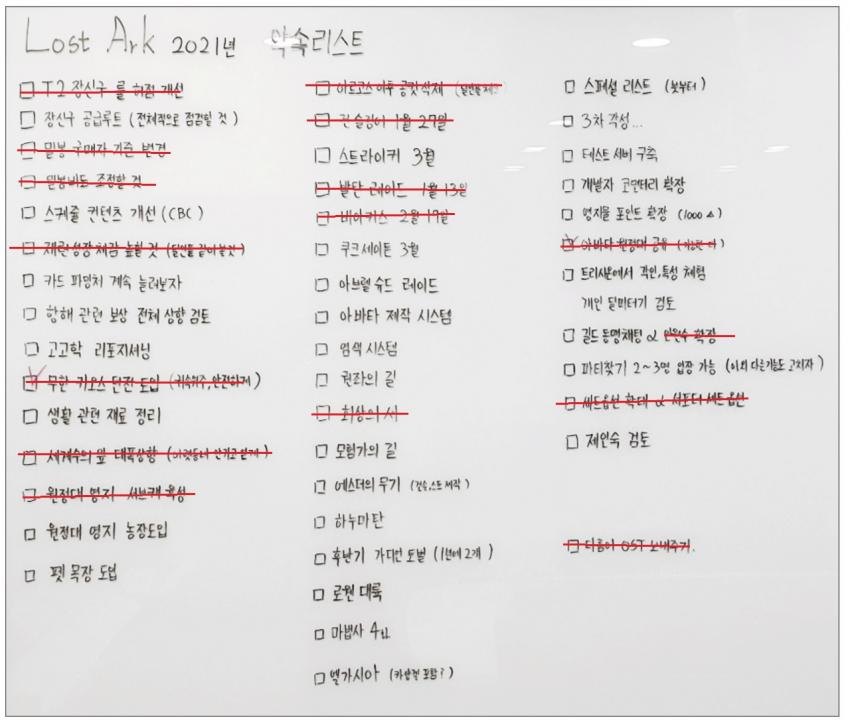 Lost Ark 2021년 약속리스트
T2 장신구 룰 허점 개선
장신구 공급루트 (전체적으로 점검할 것)
밀봉 구매자 기준 변경
밀봉비도 조정할 것
스케쥴 컨텐츠 개선 (CBC)
재련성장체감 높힐 것 (달인물 같이볼것)
카드 파밍처 계속 늘려보자
항해 관련 보상 전체 상향 검토
고고학 리포지셔닝
무한 카오스 던전 도입 (귀속위주, 안전하게)
생활 관련 재료 정리
세계수의 잎 대폭상향
원정대 영지 서브캐 육성
원정대 영지 농장도입
펫 목장 도입
아르고스 이후 공팟 삭제
건슬링어 1월 27일
스트라이커 3월
발탄 레이드 1월 13일
비아키스 2월 17일
쿠크세이튼 3월
아브렐슈드 레이드
아바타 제작 시스템
염색 시스템
권좌의 길
회상의 서
모험가의 길
에스더의 무기
하누마탄
혹한기 가디언 토벌 (1년에 2개)
로웬 대륙
마법사 4차
엘가시아
스페셜 리스트 (붓부터)
3차 각성...
테스트 서버 구축
개발자 코멘터리 확장
영지물 포인트 확장
아바타 원정대 공유
트리시온에서 각인, 특성 체험
개인 딜미터기 검토
길드 동맹채팅 & 인원수 확장
파티찾기 2~3명 입장 가능
세트옵션 확대 & 서포터 세트옵션
제인숙 검토
다음이 OST 보내주기.